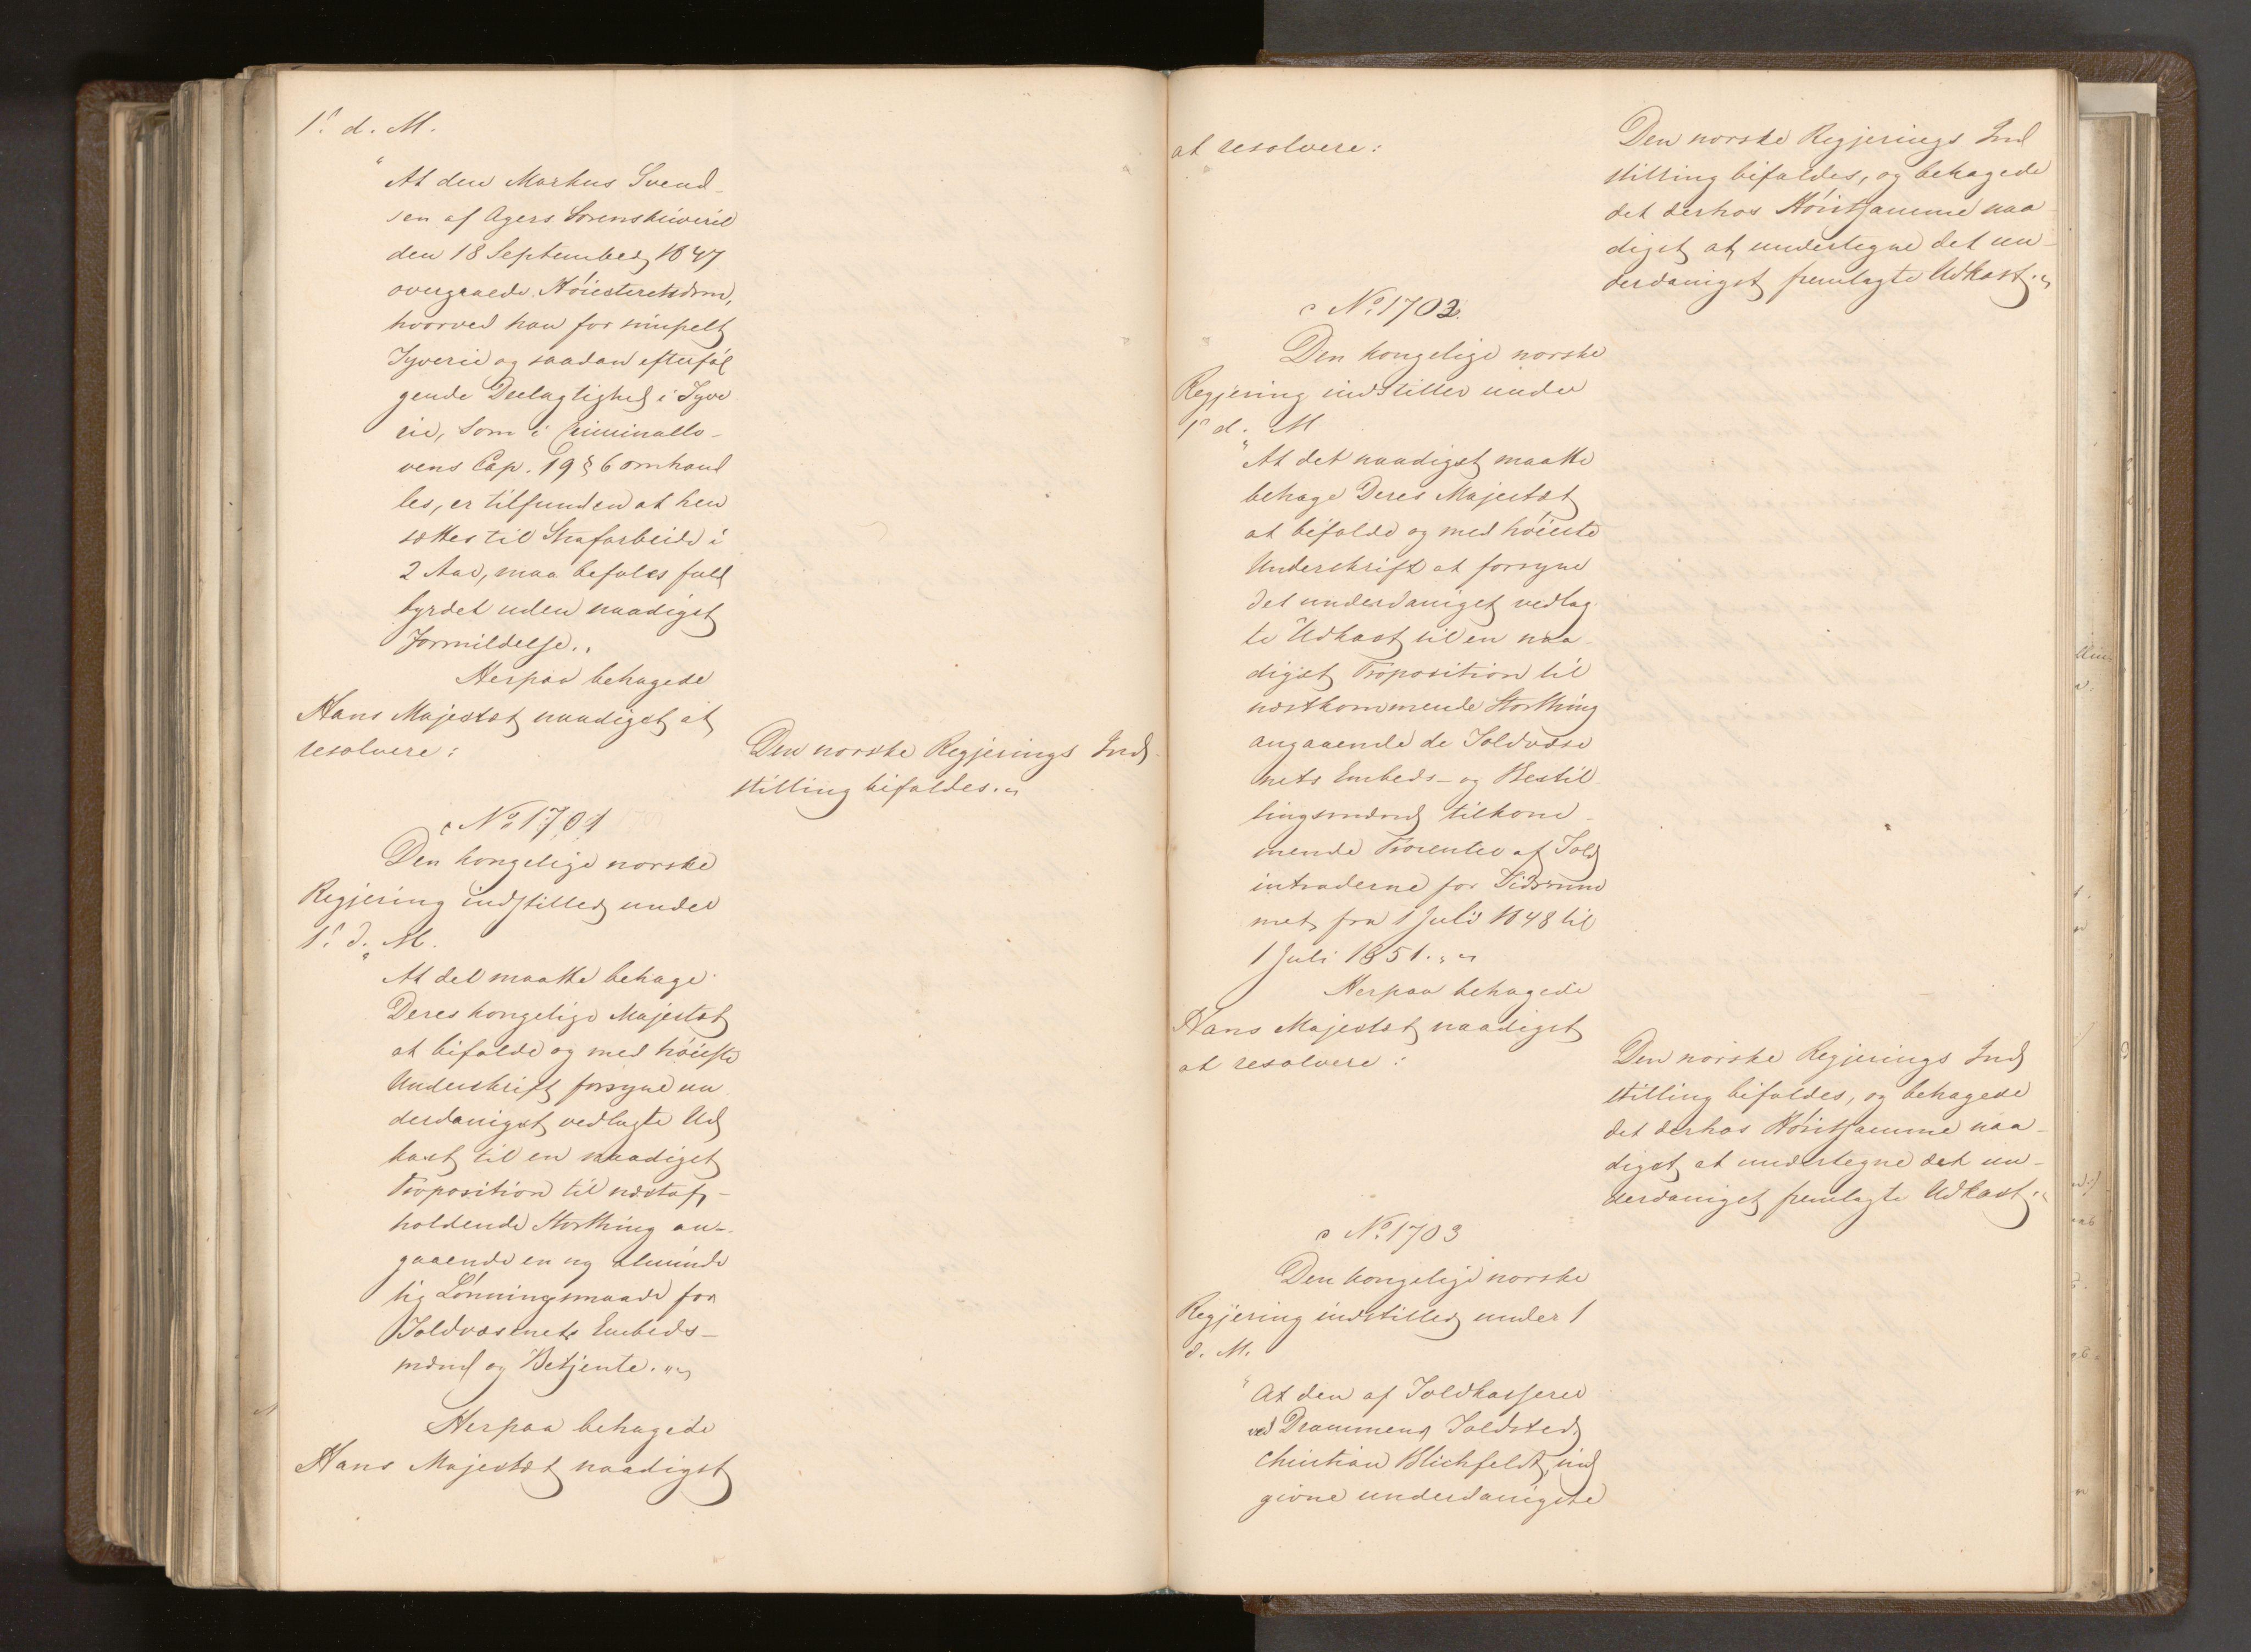 1ste d. M.
"At den Markus Svend-
sen af Agers Sorenskriveri
den 18 September 1847
overgaaede Höiesteretsdom,
hvorved han for simpelt
Tyverie og saadan efterföl
gende Deelagtighed i Tyve
rie, som i Criminallo-
vens Cap. 19 § 6 omhand
les, er tilfunden at hen
sættes til Strafarbeide i
2 Aar, maa befales fuld
byrdet uden naadigst
Formildelse."
Herpaa behagede
Hans Majestæt naadigst at
resolvere:
Den norske Regjerings Ind-
stilling bifaldes."
No 1701
Den kongelige norske
Regjering indstiller under
1ste d. M.
"At det maatte behage
Deres kongelige Majestæt
at bifalde og med höieste
Underskrift forsyne un
derdanigst vedlagte Ud
kast til en naadigst
Proposition til næstaf-
holdende Storthing an-
gaaende en ny alminde
lig Lönningsmaade for
Toldvæsenets Embeds-
mænd og Betjente.""
Herpaa behagede
Hans Majestæt naadigst
at resolvere:
Den norske Regjerings Ind
stilling bifaldes, og behagede
det derhos Höistsamme naa
digst at undertegne det un-
derdanigst fremlagte Udkast."
No 1702.
Den kongelige norske
Regjering indstiller under
1ste d. M
"At det naadigst maatte
behage Deres Majestæt
at bifalde og med höieste
Underskrift at forsyne
det underdanigst vedlag
te Udkast til en naa
digst Proposition til
næstkommende Storthing
angaaende de Toldvæse
nets Embeds- og Bestil
lingsmænd tilkom-
mende Procenter af Told
intraderne for Tidsrum
met fra 1 Juli 1848 til
1 Juli 1851.""
Herpaa behagede
Hans Majestæt naadigst
at resolvere:
Den norske Regjerings Ind
stilling bifaldes, og behagede
det derhos Höistsamme naa-
digst at undertegne det un-
derdanigst fremlagte Udkast."
No 1703
Den kongelige norske
Regjering indstiller under 1
d. M.
"At den af Toldkasserer
ved Drammens Toldsted
Christian Blichfeldt, ind
givne underdanigste